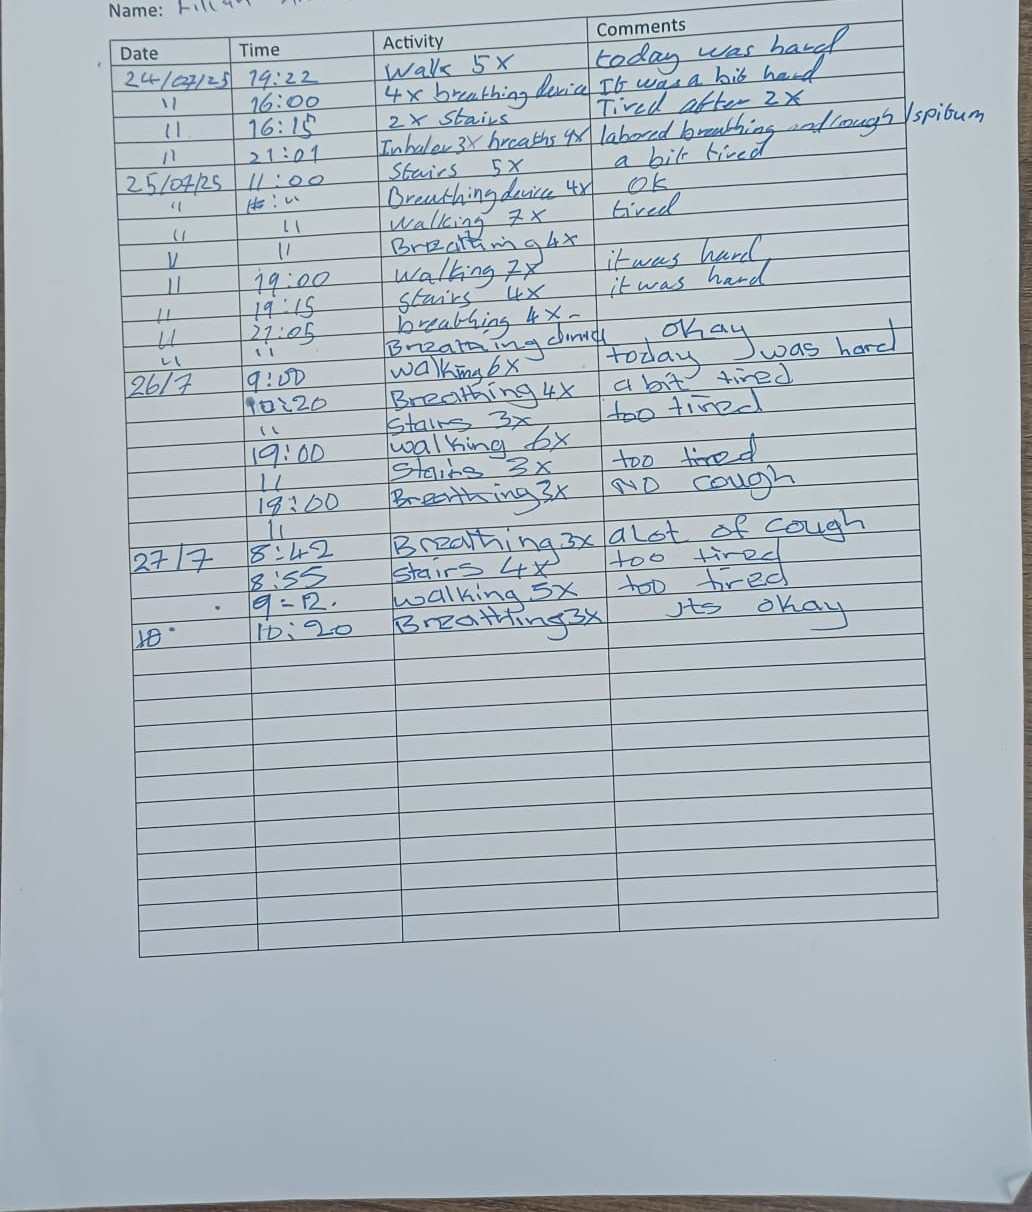 Name: Lilian
Date Time Activity Comments
24/07/25 19:22 Walk 5X today was hard
11 16:00 4x breathing device It was a bit hard
11 16:15 2x stairs Tired after 2X
11 21:01 Inhaler 3X breaths 4X labored breathing and cough /spitum
Stairs 5X a bit tired
25/07/25 11:00 Breathing device 4X OK
" : " Walking 7X tired
11 11 Breathing 4x
11 19:00 Walking 7X it was hard
11 19:15 Stairs 4X it was hard
11 21:05 breathing 4X -
11 11 Breathing okay
26/7 9:00 walking 6X today was hard
10:20 Breathing 4X a bit tired
11 Stairs 3X too tired
19:00 walking 6X
11 Stairs 3X too tired
18:00 Breathing 3X NO cough
11
27/7 8:42 Breathing 3X alot of cough
8:55 Stairs 4X too tired
9 = 12. walking 5X too tired
10:20 Breathing 3X its okay